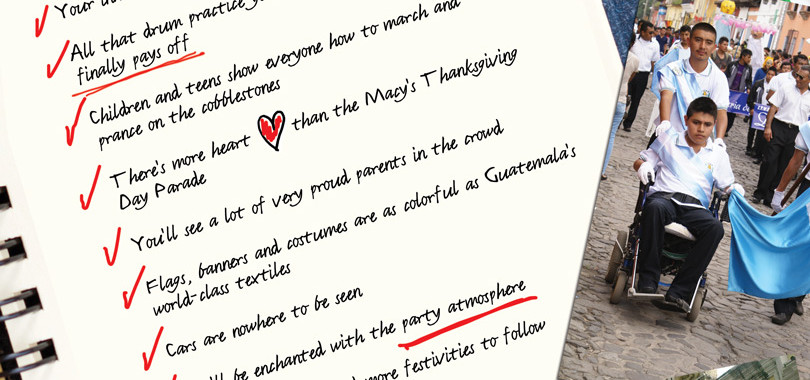 Your
All that drum practice
finally pays off
Children and teens show everyone how to march and
prance on the cobblestones
There's more heart than the Macy's Thanksgiving
Day Parade
You'll see a lot of very proud parents in the crowd
Flags, banners and costumes are as colorful as Guatemala's
world-class textiles
Cars are nowhere to be seen
be enchanted with the party atmosphere
more festivities to follow